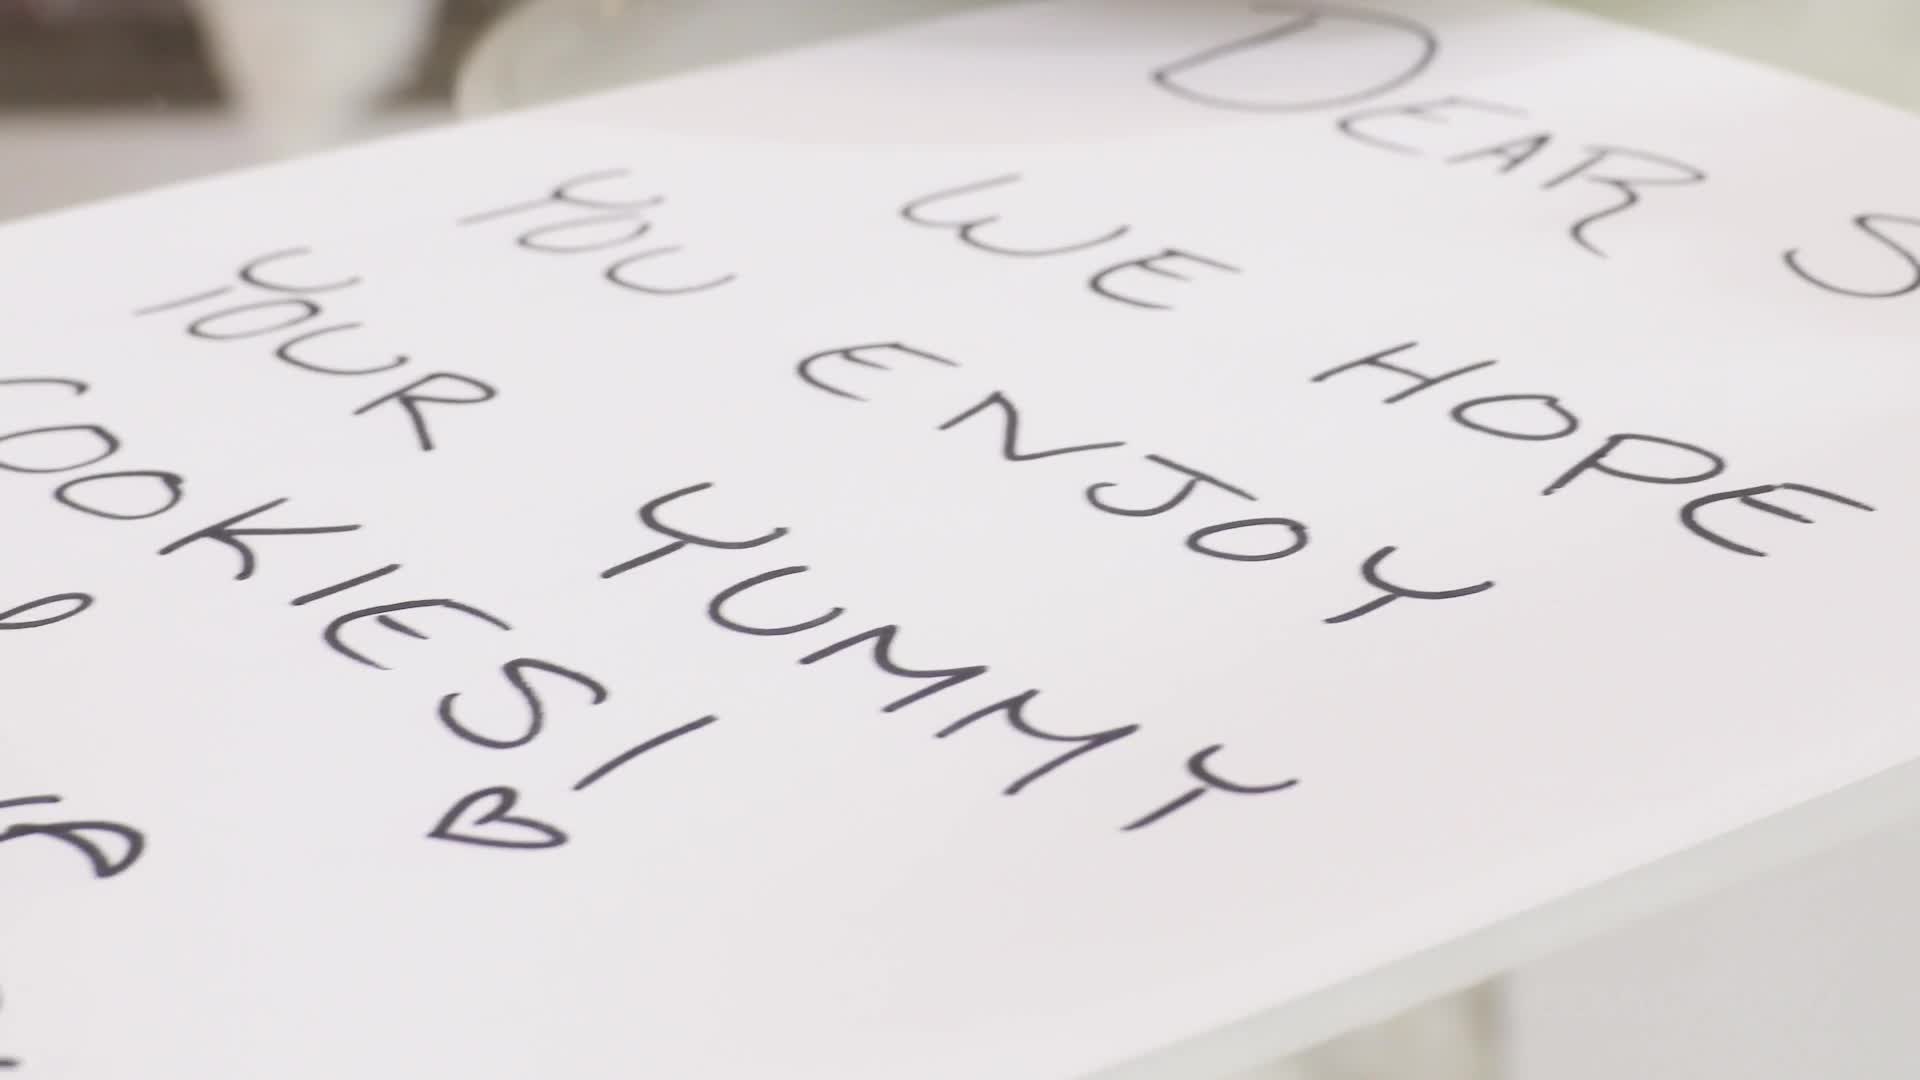 DEAR S
WE HOPE
YOU ENJOY
YOUR YUMMY
COOKIES! ♡